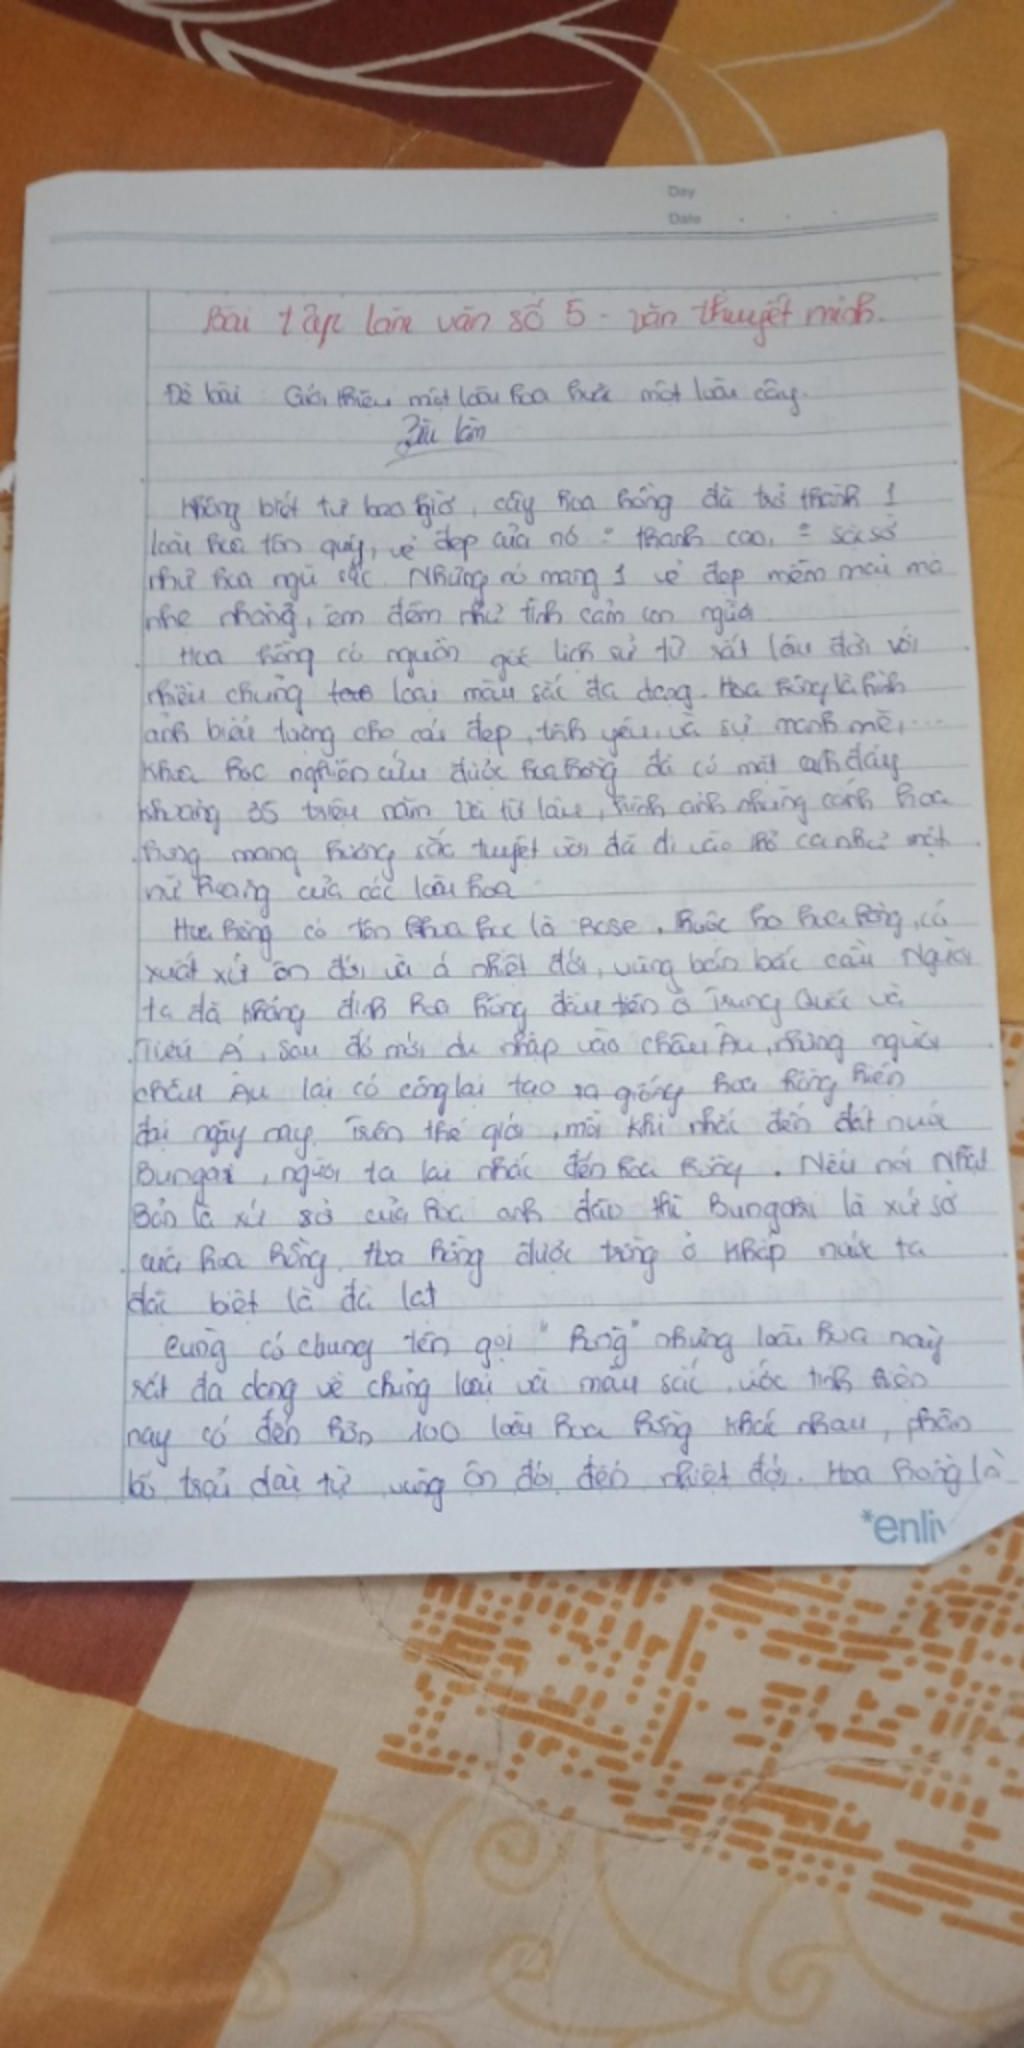 Day
Date
Bài tập làm văn số 5 - văn thuyết minh.
Đề bài : Giới thiệu một loài hoa hoặc một loài cây.
Bài làm
Không biết từ bao giờ, cây hoa hồng đã trở thành 1
loài hoa tôn quý, vẻ đẹp của nó = thanh cao, = sặc sỡ
như hoa ngũ sắc. Nhưng nó mang 1 vẻ đẹp mềm mại mà
nhẹ nhàng, êm đềm như tình cảm con người
Hoa hồng có nguồn gốc lịch sử từ rất lâu đời với
nhiều chủng loại màu sắc đa dạng. Hoa hồng là hình
ảnh biểu tượng cho cái đẹp, tình yêu và sự mạnh mẽ,...
Khoa học nghiên cứu được hoa hồng đã có mặt cách đây
khoảng 35 triệu năm và từ lâu, hình ảnh những cánh hoa
hồng mang hương sắc tuyệt vời đã đi vào thơ ca như một
nữ hoàng của các loài hoa
Hoa hồng có tên khoa học là Rose, thuộc họ hoa hồng, có
xuất xứ ôn đới và á nhiệt đới, vùng bán bắc cầu Người
ta đã khẳng định hoa hồng đầu tiên ở Trung Quốc và
Tiểu Á, sau đó mới du nhập vào châu Âu, nhưng người
châu Âu lại có công lai tạo ra giống hoa hồng hiện
đại ngày nay. Trên thế giới, mỗi khi nhắc đến đất nước
Bungari, người ta lại nhắc đến hoa hồng. Nếu nói Nhật
Bản là xứ sở của hoa anh đào thì Bungari là xứ sở
của hoa hồng. Hoa hồng được trồng ở khắp nước ta
đặc biệt là đà lạt
Cùng có chung tên gọi "hồng" nhưng loài hoa này
rất đa dạng về chủng loại và màu sắc, ước tính hiện
nay có đến hơn 100 loài hoa hồng khác nhau, phân
bố trải dài từ vùng ôn đới đến nhiệt đới. Hoa hồng là
*enliv